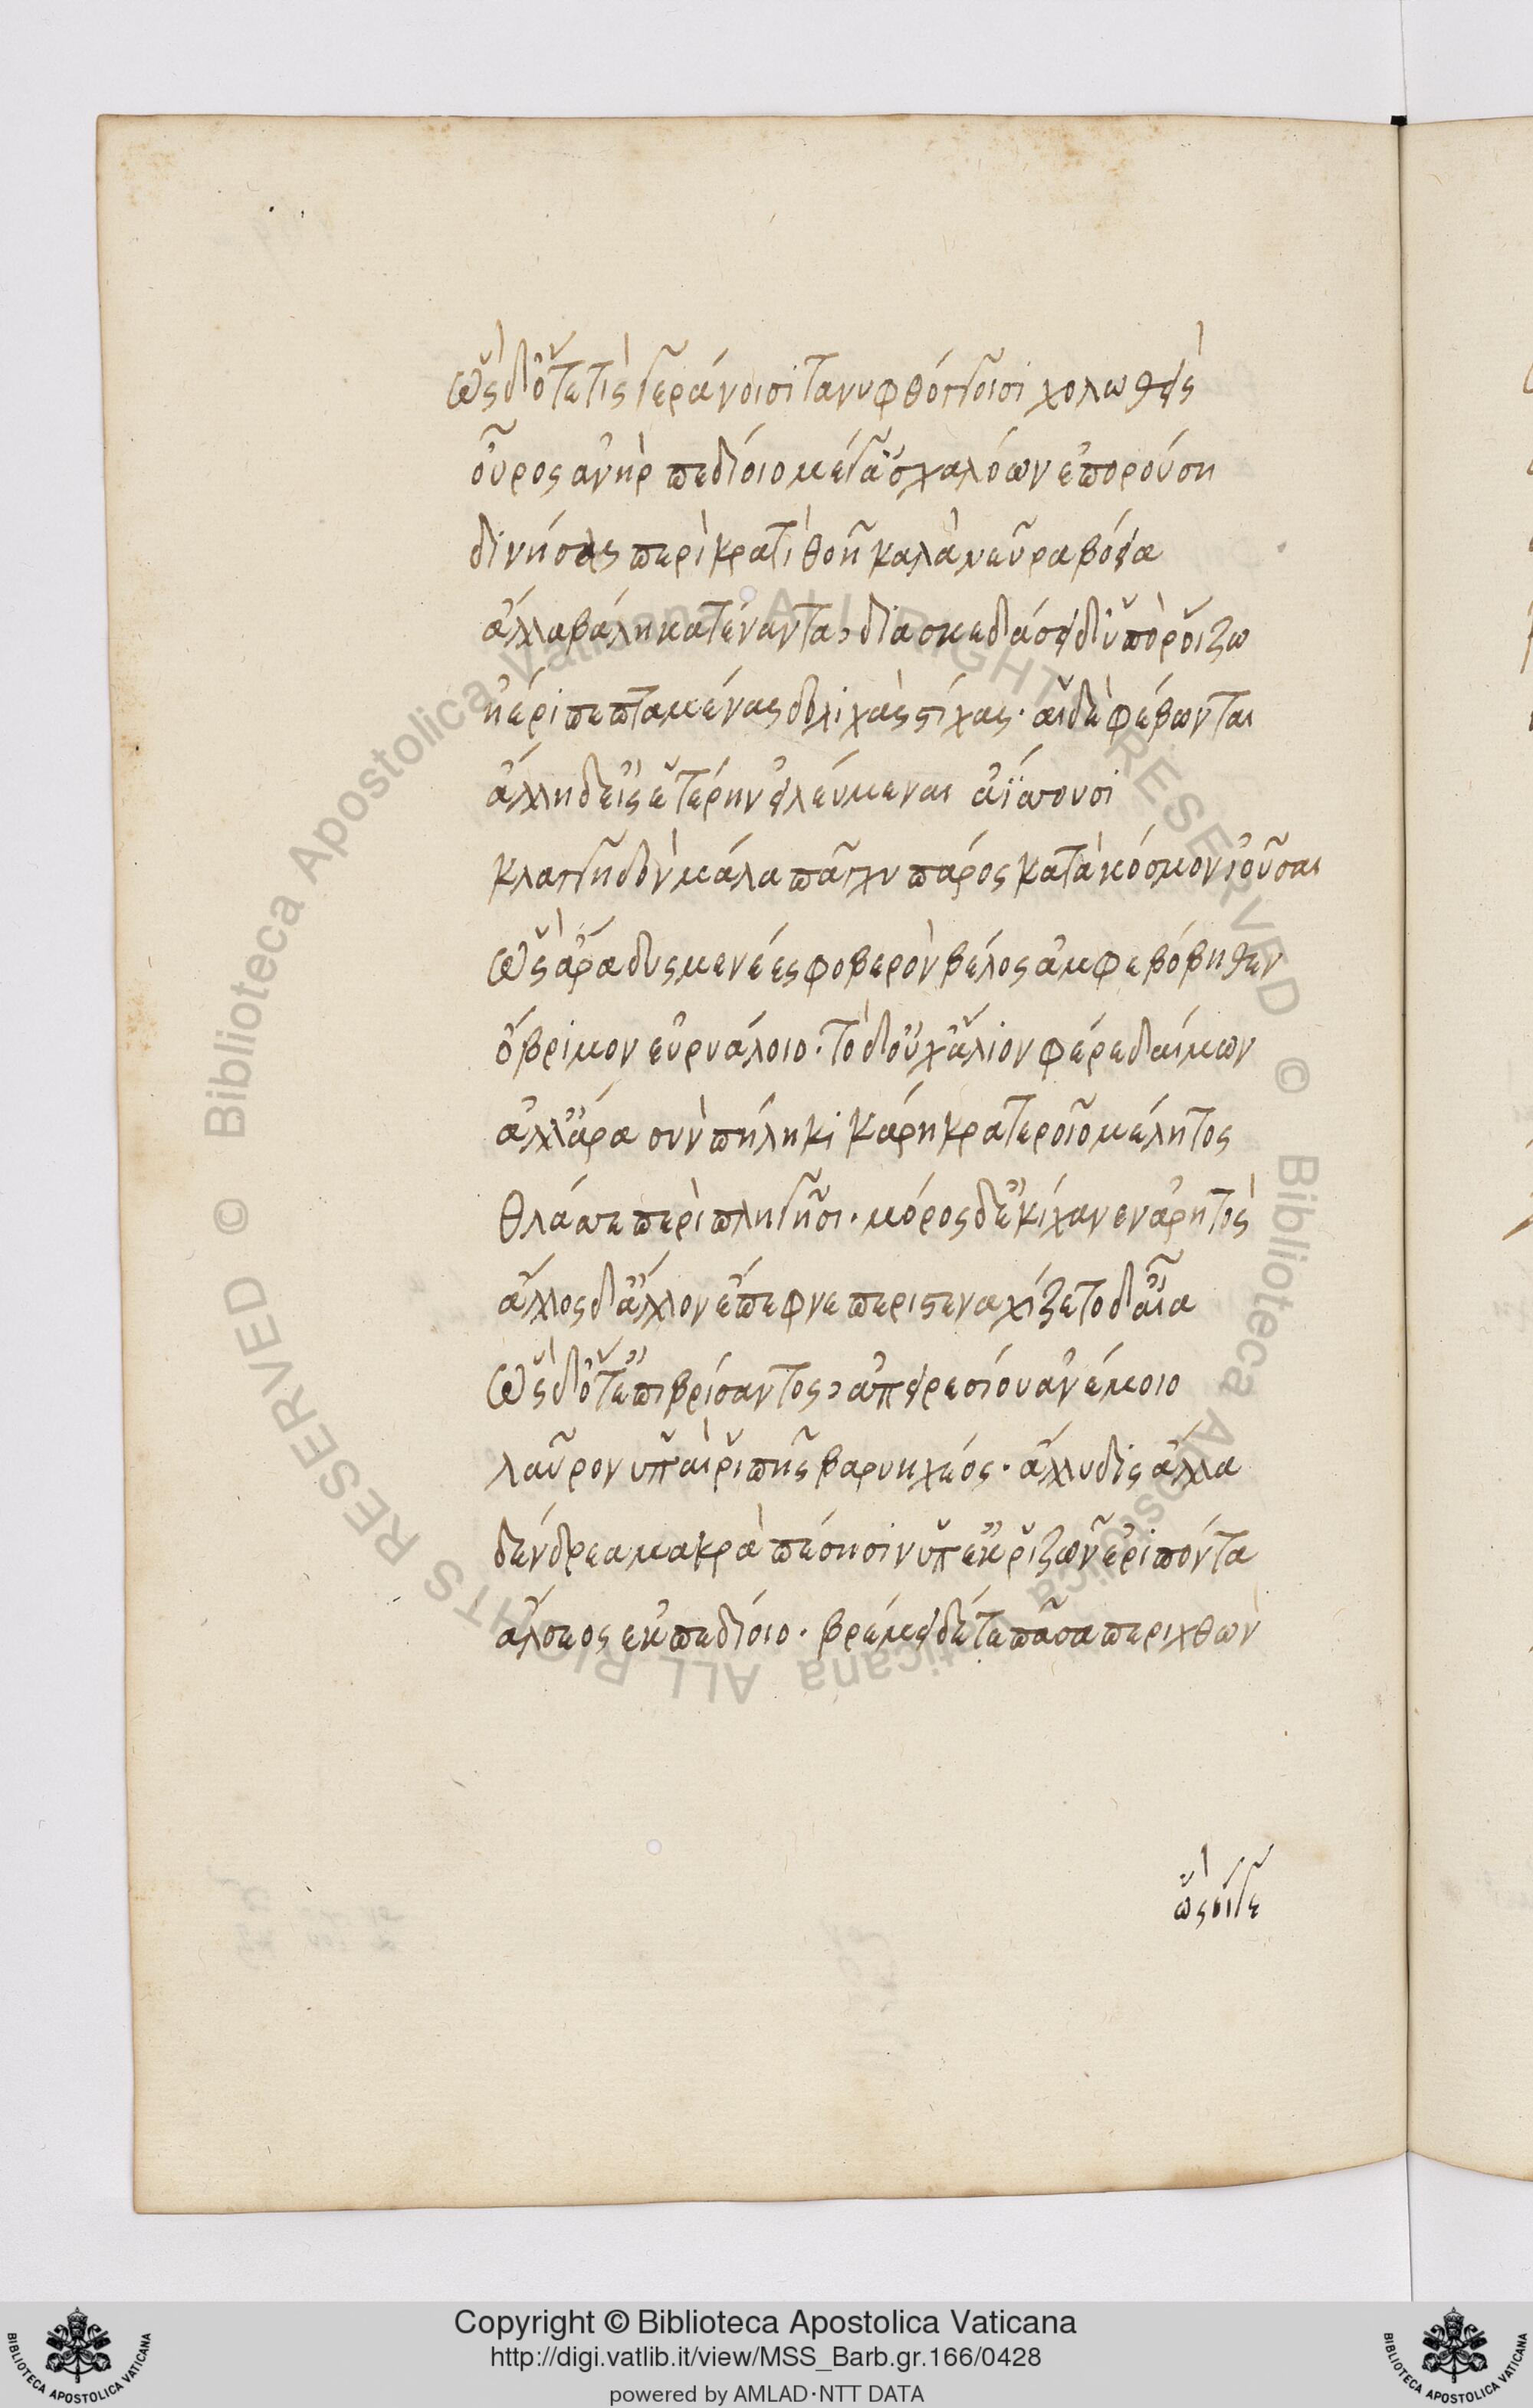 ὡς δ' ὅτε τις γεράνοισι τανυφθόγγοισι χολωθεὶς
οὖρος ἀνὴρ πεδίοιο μέγ' ἀσχαλόων ἐπορούση
δινήσας περὶ κρατὶ θοῆ καλὰ νεῦρα βόεια
ἄλλα βάλη κατέναντα, διασκεδάσει δ' ὑπὸ ῥοίζω
ἠέρι πεπταμένας δολιχὰς στίχας· αἱ δὲ φέβωνται
ἄλλη δ' εἰς ἑτέρην εἰλεύμεναι ἀΐσσουσι
κλαγγηδὸν μάλα πάγχυ πάρος κατὰ κόσμον ἰοῦσαι
ὡς ἄρα δυσμενέες φοβερὸν βέλος ἀμφεβόβηθεν
ὄβριμον εὐρυάλοιο· τὸ δ' οὐχ ἅλιον φέρε δαίμων
ἀλλ' ἄρα σὺν πήληκι κάρη κρατεροῖο μέλητος
θλάσσε περὶ πληγῆσι· μόρος δ' ἐκίχανεν ἀρητὸς
ἄλλος δ' ἄλλον ἔπεφνε περιστεναχίζετο δ' αἶα
ὡς δ' ὅτ' ἐπιβρίσαντος, ἀπειρεσίου ἀνέμοιο
λαῦρον ὑπαὶ ῥιπῆς βαρυηχέος· ἄλλυδις ἄλλα
δένδρεα μακρὰ πέσησιν ὑπ' ἐκ ῥιζῶν ἐριπόντα
ἄλσεος ἐκ πεδίοιο· βρέμει δέ τε πᾶσα περιχθὼν
Copyright © Biblioteca Apostolica Vaticana
http://digi.vatlib.it/view/MSS_Barb.gr.166/0428
powered by AMLAD·NTT DATA
BIBLIOTECA APOSTOLICA VATICANA
BIBLIOTECA APOSTOLICA VATICANA
© Biblioteca Apostolica Vaticana ALL RIGHTS RESERVED © Biblioteca Apostolica Vaticana ALL RIGHTS RESERVED